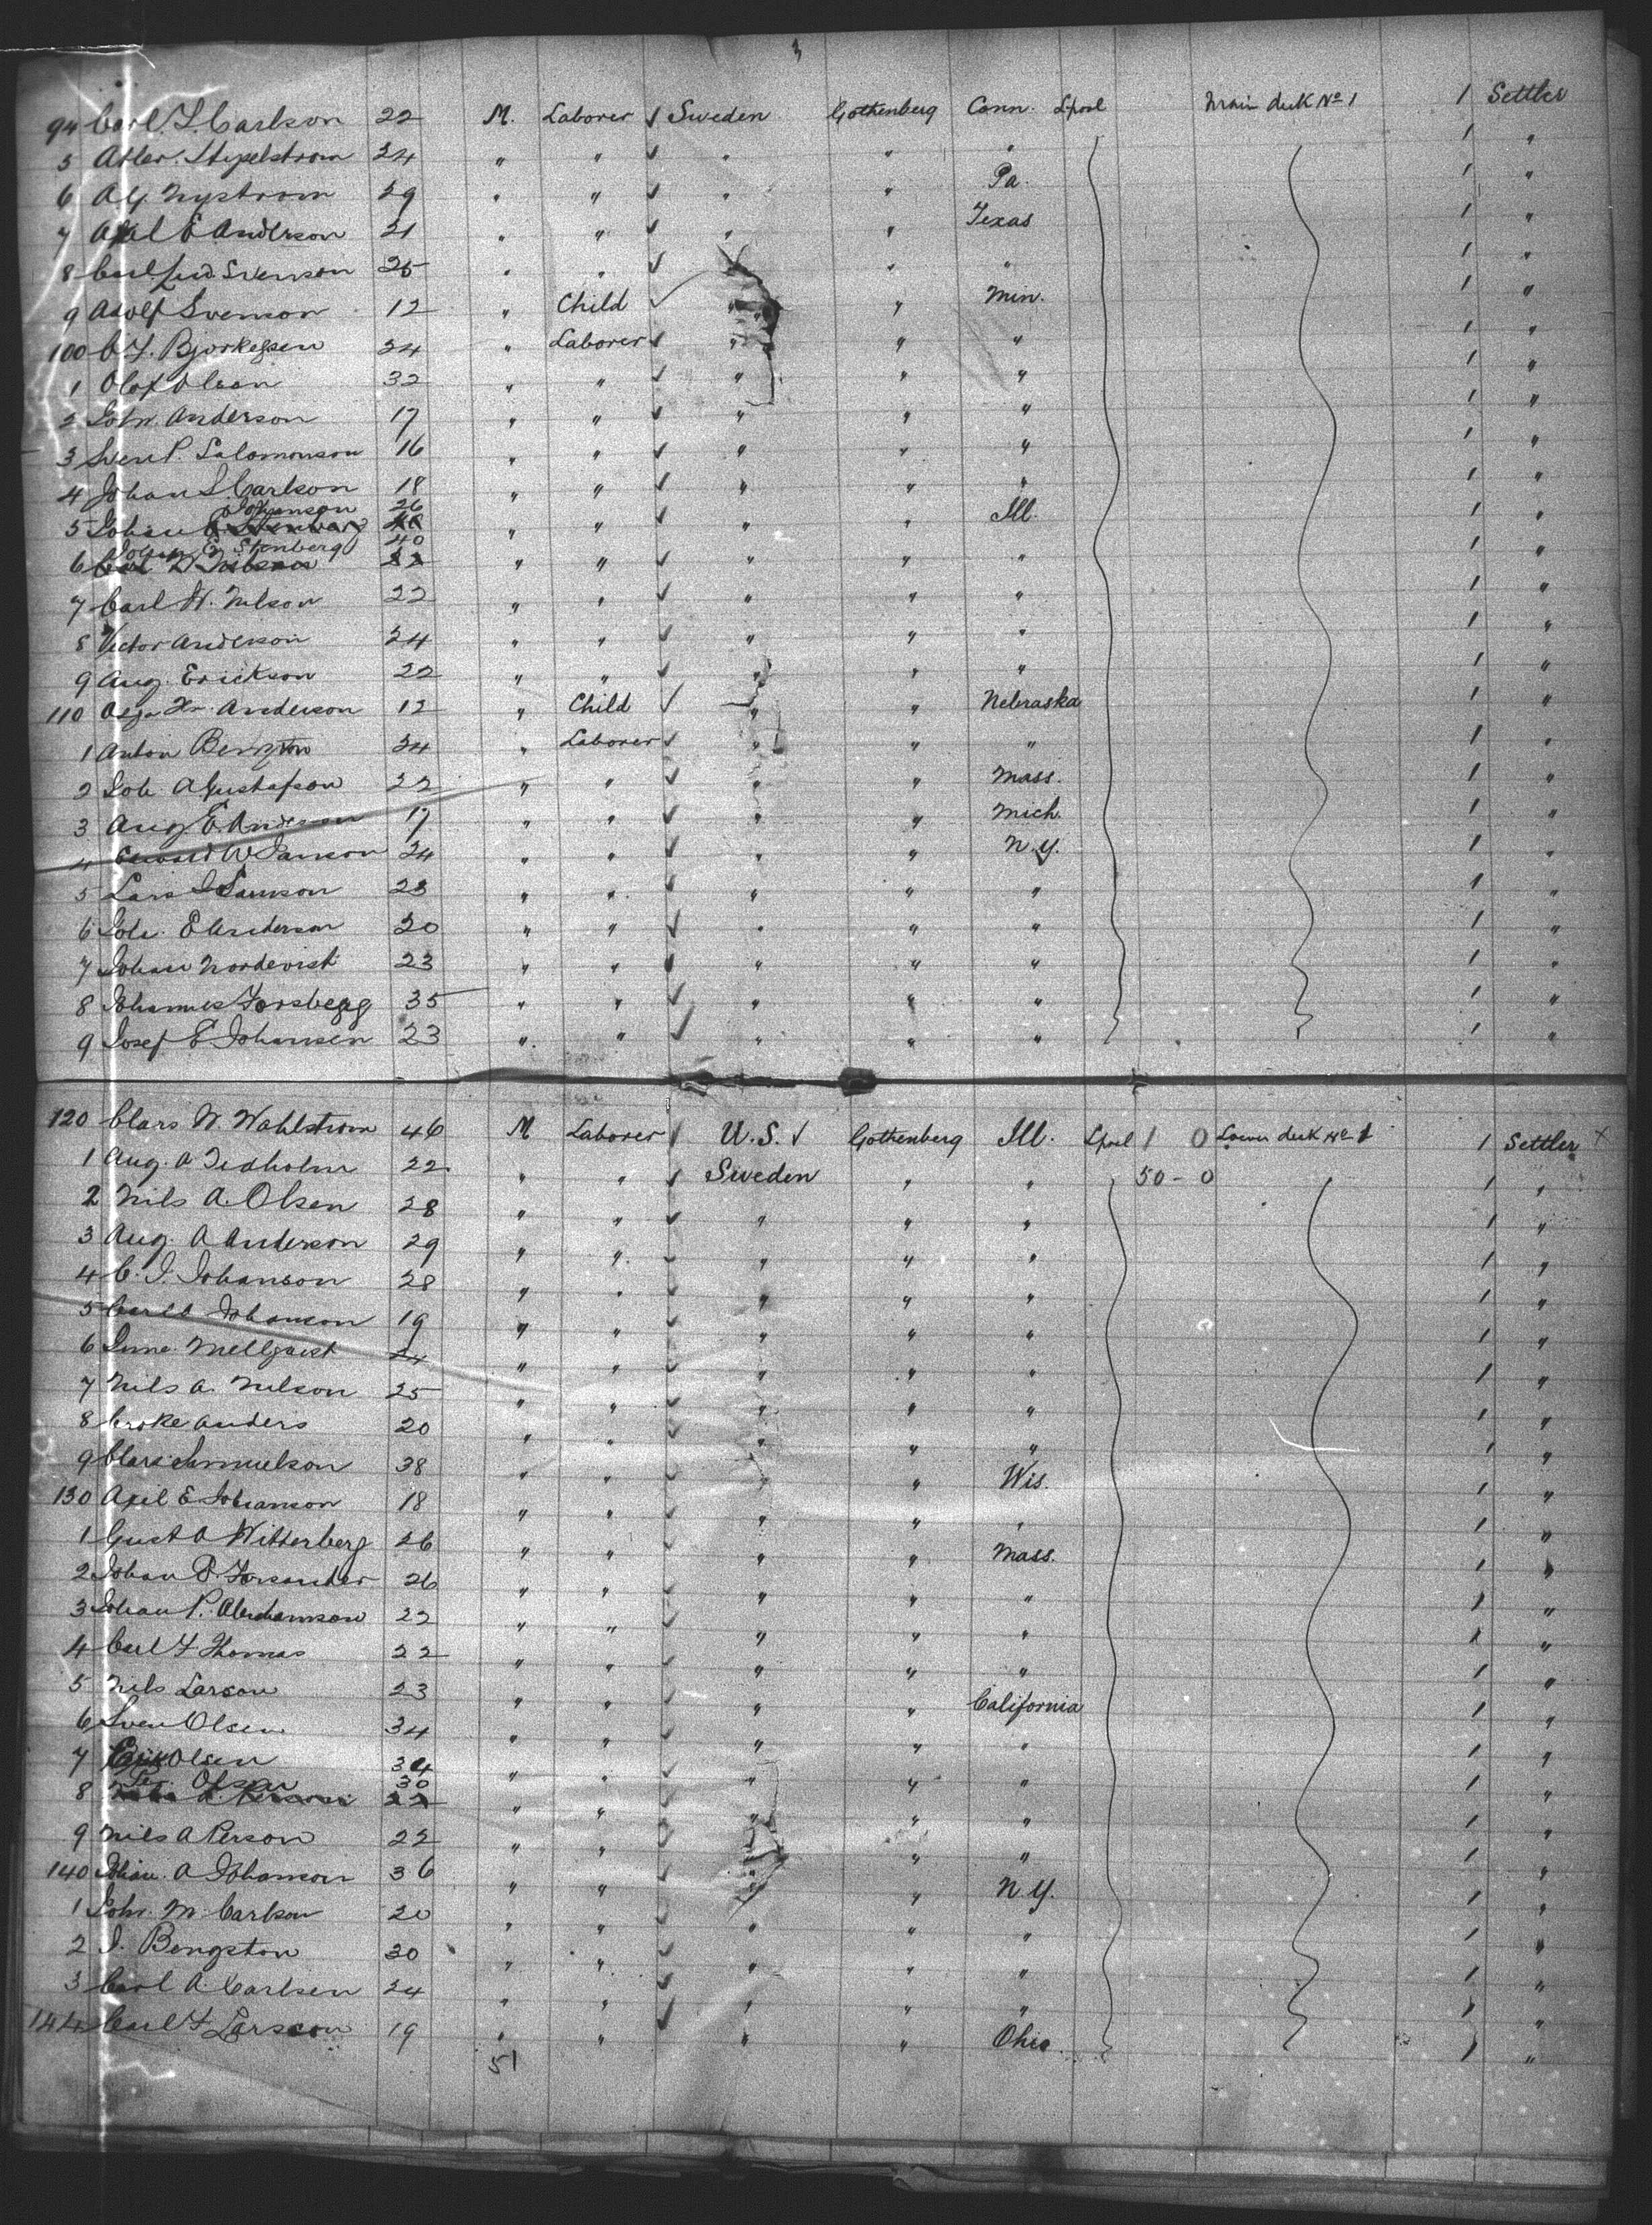 3
94 Carl. F. Carlson 22 M. Laborer √ Sweden Gothenberg Conn. Lpool Main deck No 1 1 Settler
5 24 " " √ " " " 1 "
6 A. G. Nystrom 29 " " √ " " Pa. 1 "
7 Axel E Anderson 21 " " √ " " Texas 1 "
8 Carl Svenson 25 " " √ " " 1 "
9 Adolf Svenson 12 " Child √ " " Min. 1 "
100 C. F. 24 " Laborer √ " " " 1 "
1 Olof Olson 32 " " √ " " " 1 "
2 Joh. Anderson 17 " " √ " " " 1 "
3 Sven P. Salomonson 16 " " √ " " " 1 "
4 Johan Carlson 18 " " √ " " " 1 "
Johanson 26
5 Johan " " √ " " Ill. 1 "
Johan E. Stenberg 40
6 " " √ " " " 1 "
7 Carl W. Nelson 22 " " √ " " " 1 "
8 Victor Anderson 24 " " √ " " " 1 "
9 Aug. Erickson 22 " " √ " " " 1 "
110 Anderson 12 " Child √ " " Nebraska 1 "
1 Anton Bengston 24 " Laborer √ " " " 1 "
2 Joh. A Gustafson 22 " " √ " " Mass. 1 "
3 Aug. E. Anderson 17 " " √ " " Mich. 1 "
4 Edward W 24 " " √ " " N. Y. 1 "
5 Lars 23 " " √ " " " 1 "
6 Joh. E Anderson 20 " " √ " " " 1 "
7 Johan Nordqvist 23 " " √ " " " 1 "
8 Johannes Forsberg 35 " " √ " " " 1 "
9 Josef E Johansen 23 " " √ " " " 1 "
120 Clars W. Wahlstrom 46 M Laborer √ U. S. √ Gothenberg Ill. Lpool 1 0 Lower deck No 1 1 Settler x
1 Aug. A 22 " " √ Sweden " " 50 - 0 1 "
2 Nils A. Olsen 28 " " √ " " " 1 "
3 Aug. A Anderson 29 " " √ " " " 1 "
4 C. J. Johanson 28 " " √ " " " 1 "
5 Carl A Johanson 19 " " √ " " " 1 "
6 Mellqvist 24 " " √ " " " 1 "
7 Nils A. Nelson 25 " " √ " " " 1 "
8 Anders 20 " " √ " " " 1 "
9 Clars Samuelson 38 " " √ " " Wis. 1 "
130 Axel E Johanson 18 " " √ " " " 1 "
1 Gust A Witterberg 26 " " √ " " Mass. 1 "
2 Johan P. 26 " " √ " " " 1 "
3 Johan P. Abrahamson 22 " " √ " " " 1 "
4 Carl F Thomas 22 " " √ " " " 1 "
5 Nils Larson 23 " " √ " " California 1 "
6 Sven Olsen 34 " " √ " " " 1 "
7 Olsen 34 " " √ " " " 1 "
Olsen 30
8 " " √ " " " 1 "
9 Nils A Person 22 " " √ " " " 1 "
140 Johan. A Johanson 36 " " √ " " N. Y. 1 "
1 Joh. M. Carlson 20 " " √ " " " 1 "
2 J. Bengston 30 " " √ " " " 1 "
3 Carl A. Carlsen 24 " " √ " " " 1 "
144 Carl F Larsson 19 " " √ " " Ohio 1 "
51